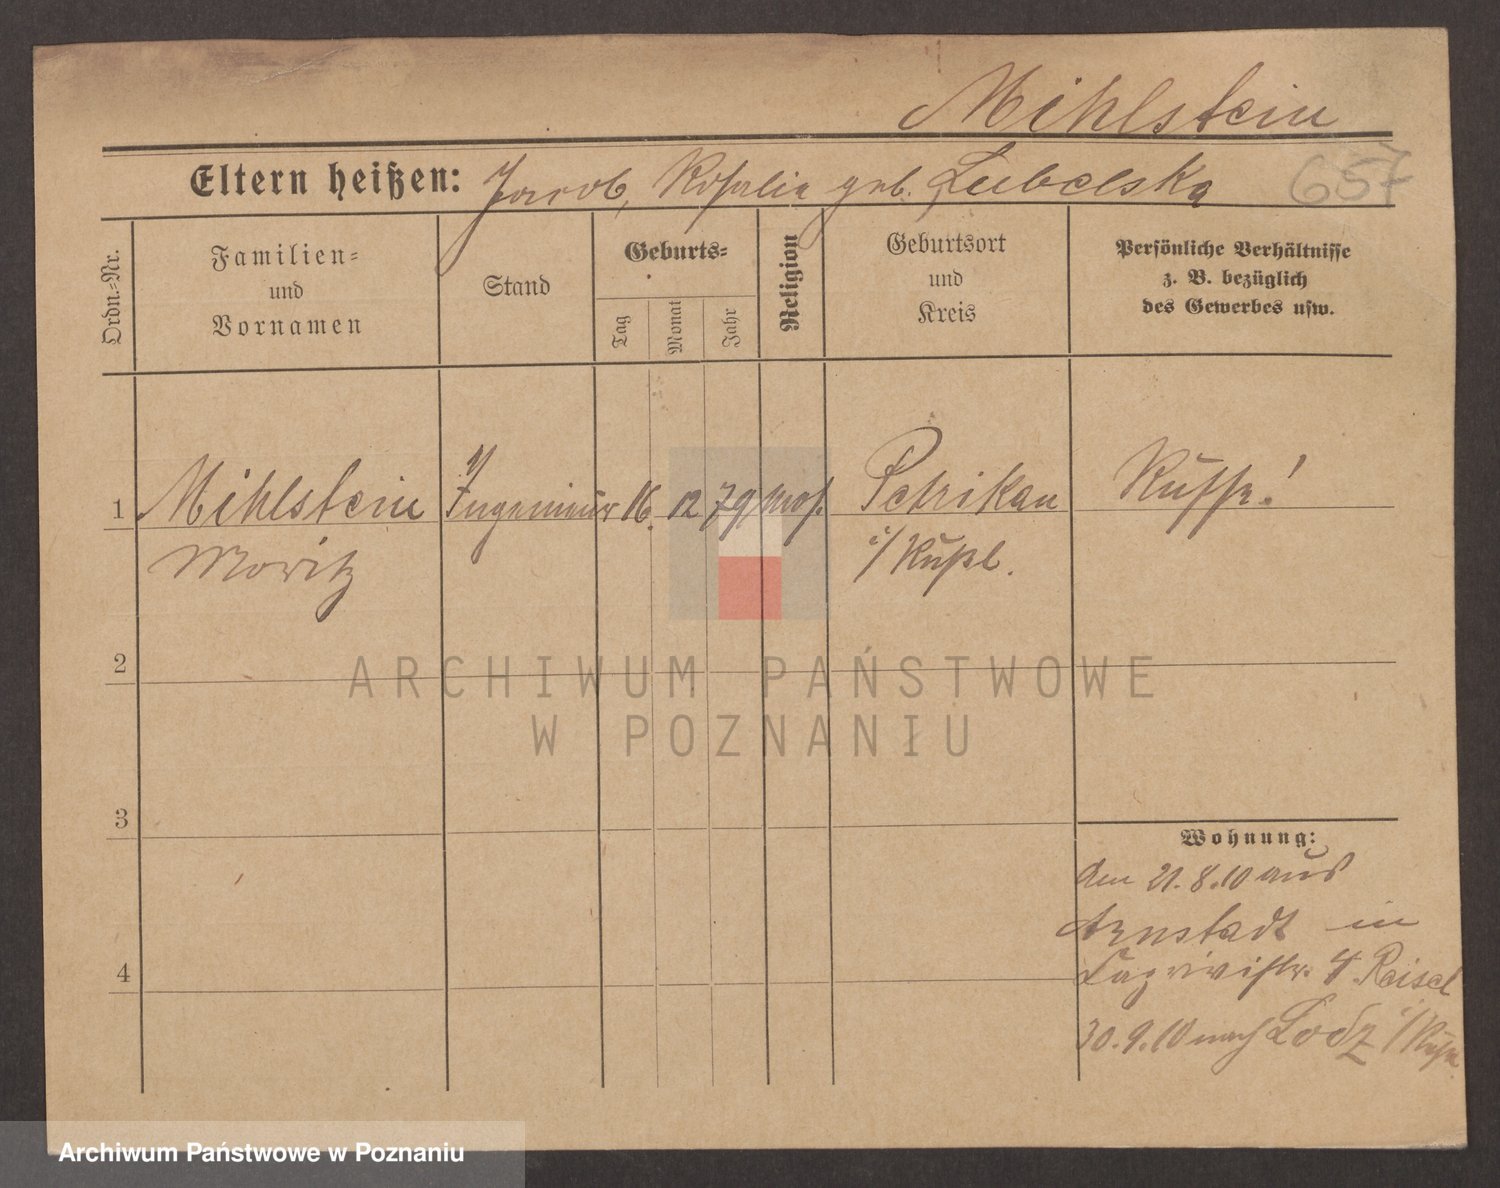 Mihlstein
Eltern heißen: Jacob, Rosalie geb. Lubelska
657
Ordn.-Nr.
Familien-
und
Vornamen
Stand
Geburts-
Tag
Monat
Jahr
Religion
Geburtsort
und
Kreis
Persönliche Verhältnisse
z. B. bezüglich
des Gewerbes usw.
1 Mihlstein Ingenieur 16. 12 79 mos. Petrikau Russe!
Moritz i/Rußl.
2
ARCHIWUM PAŃSTWOWE
W POZNANIU
3
Wohnung:
den 21.8.10 aus
Arnstadt in
Caprivistr. 4 Reisel
4
30.9.10 nach Lodz i/Rußl.
Archiwum Państwowe w Poznaniu